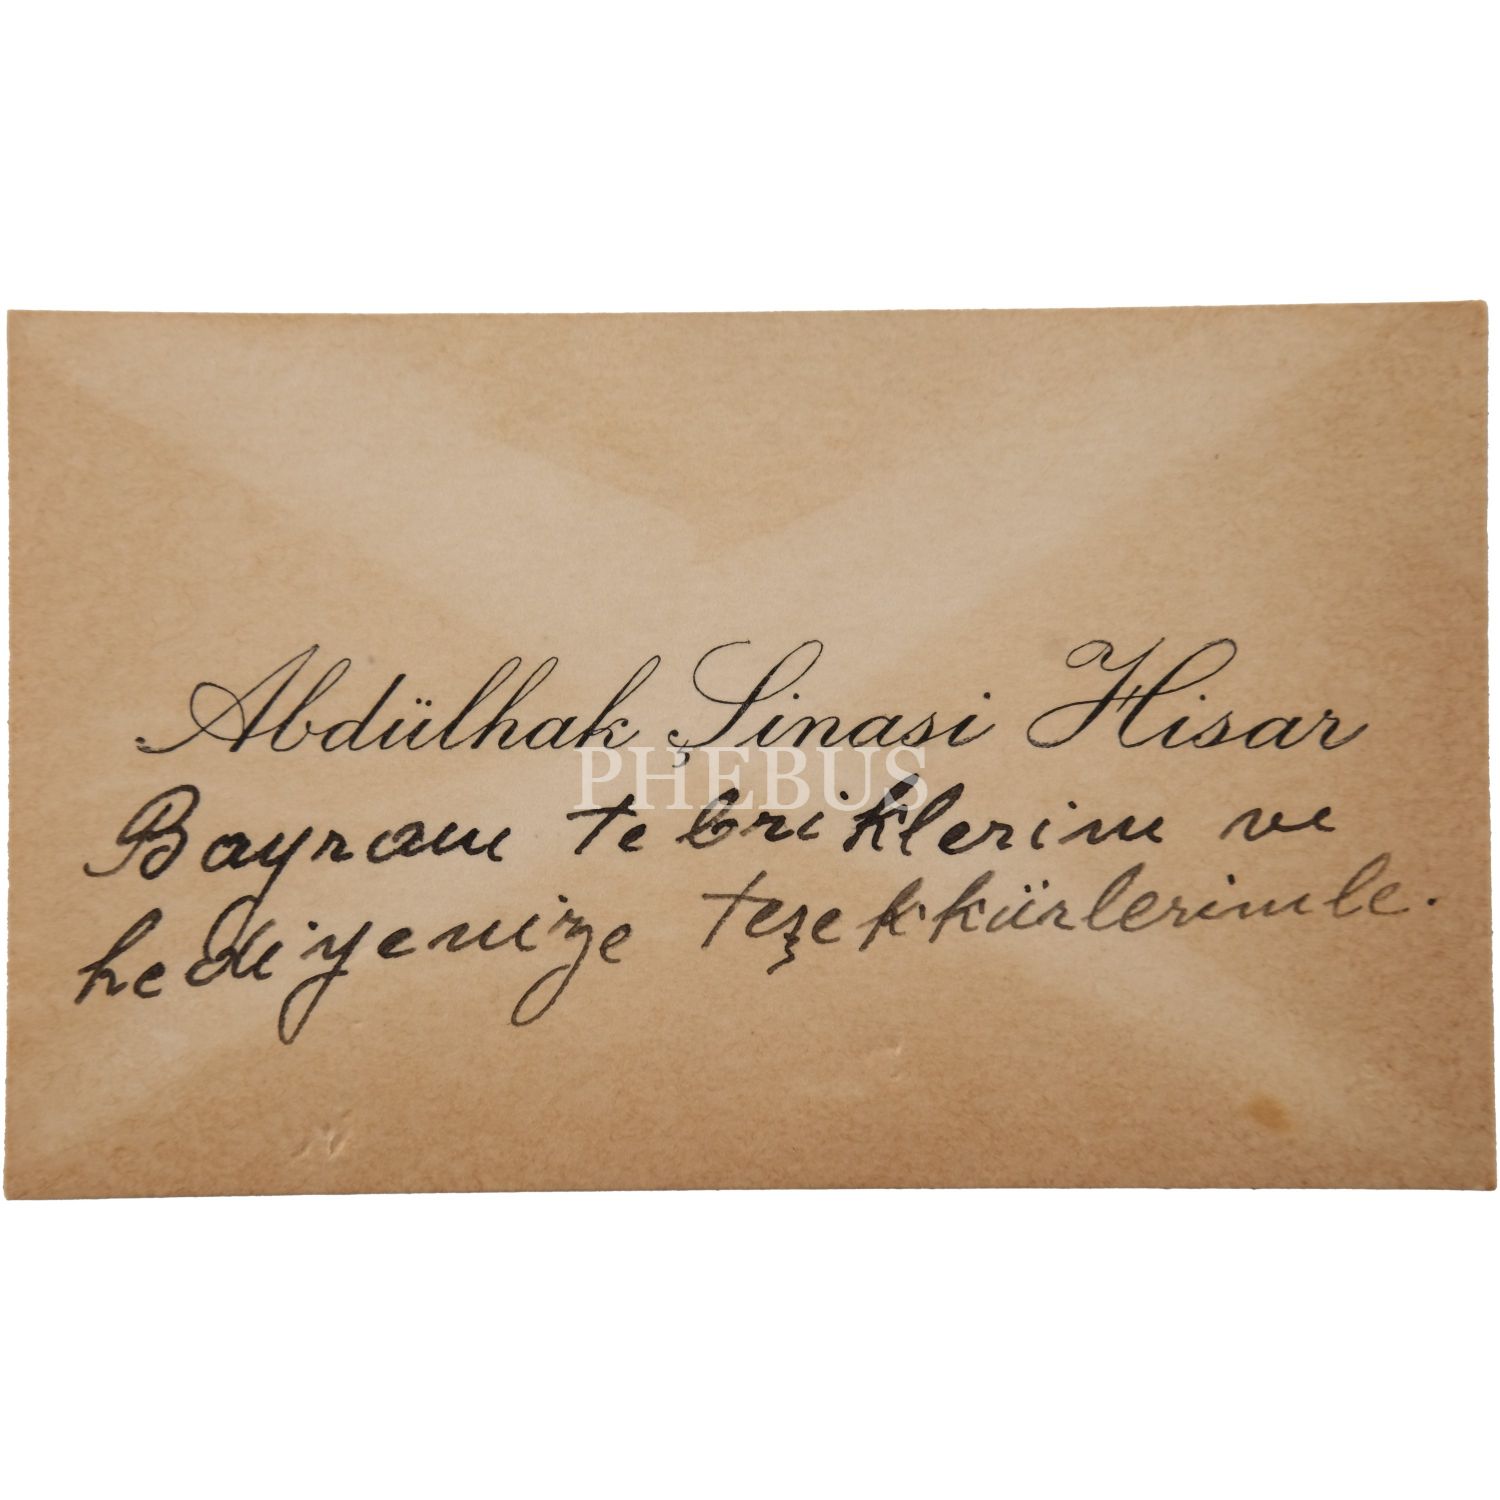 Abdülhak Şinasi Hisar
PHEBUS
Bayram tebriklerim ve
hediyenize teşekkürlerimle.